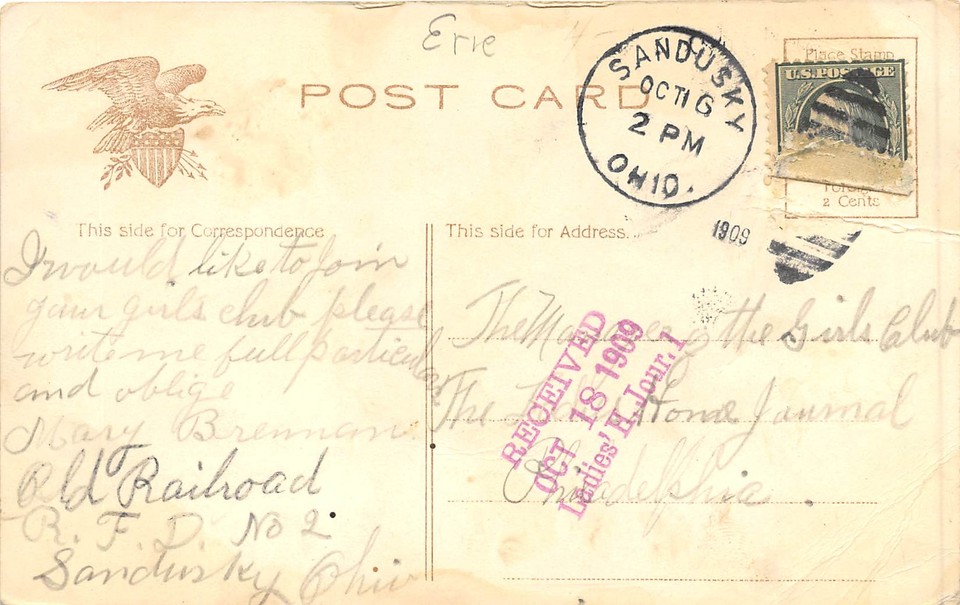 Erie
POST CARD
SANDUSKY
OCT 16
2 PM
OHIO.
1909
Place Stamp
U.S. POSTAGE
2 Cents
This side for Correspondence
This side for Address.
I would like to join
your girls club please
write me full particulars
and oblige
Mary Brennan
Old Railroad
R. F. D. No 2
Sandusky Ohio
The Manager of the Girls Club
The Ladies Home Journal
Philadelphia.
RECEIVED
OCT 18 1909
Ladies' H. Jour. I